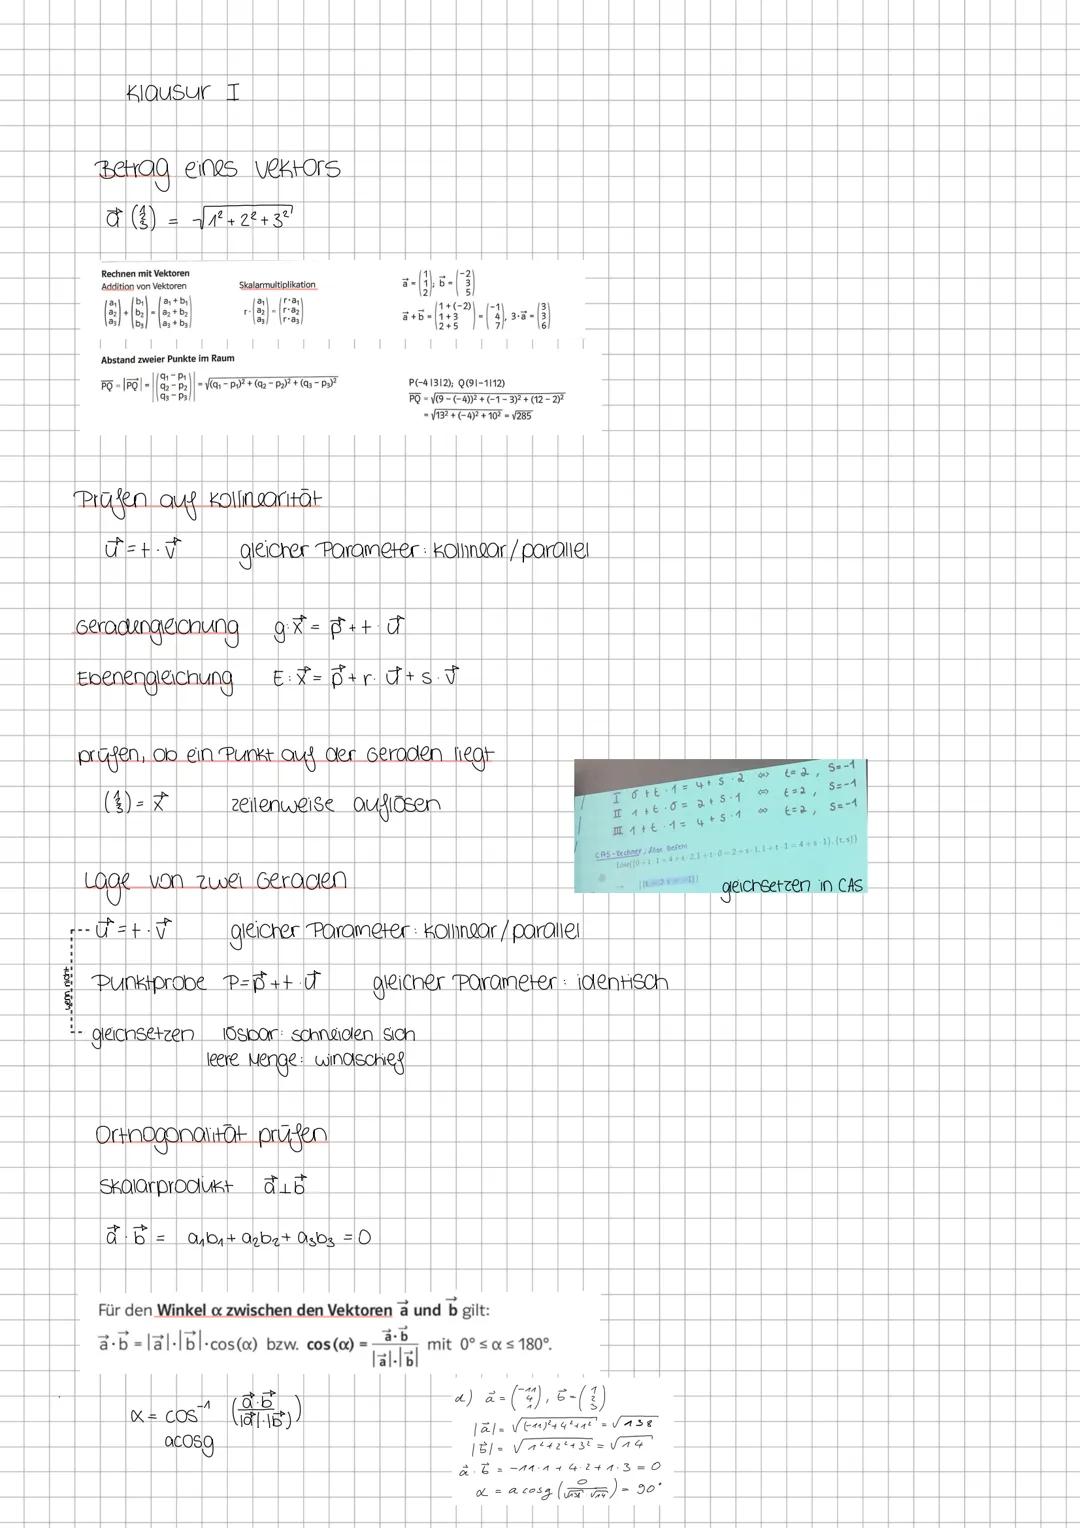 Klausur I
Betrag eines Vektors
a⃗ (1 2 3) = √1² + 2² + 3²
Rechnen mit Vektoren
Addition von Vektoren
(a₁ a₂ a₃) + (b₁ b₂ b₃) = (a₁ + b₁ a₂ + b₂ a₃ + b₃)
Skalarmultiplikation
r · (a₁ a₂ a₃) = (r·a₁ r·a₂ r·a₃)
a⃗ = (1 1 2); b⃗ = (-2 3 5)
a⃗ + b⃗ = (1+(-2) 1+3 2+5) = (-1 4 7), 3·a⃗ = (3 3 6)
Abstand zweier Punkte im Raum
PQ = |PQ⃗| = |(q₁ - p₁ q₂ - p₂ q₃ - p₃)| = √(q₁ - p₁)² + (q₂ - p₂)² + (q₃ - p₃)²
P(-4|3|2); Q(9|-1|12)
PQ = √(9 - (-4))² + (-1 - 3)² + (12 - 2)²
= √13² + (-4)² + 10² = √285
Prüfen auf Kollinearität
u⃗ = t · v⃗ gleicher Parameter: kollinear/parallel
Geradengleichung g: x⃗ = p⃗ + t · u⃗
Ebenengleichung E: x⃗ = p⃗ + r · u⃗ + s · v⃗
prüfen, ob ein Punkt auf der Geraden liegt
(1 2 3) = x⃗ zeilenweise auflösen
I 0+t·1 = 4+s·2 ⇔ t=2, s=-1
II 1+t·0 = 2+s·1 ⇔ t=2, s=-1
III 1+t·1 = 4+s·1 ⇔ t=2, s=-1
CAS-Rechner:
gleichsetzen in CAS
Lage von zwei Geraden
u⃗ = t · v⃗ gleicher Parameter: kollinear/parallel
wenn nicht
Punktprobe P = p⃗ + t · u⃗ gleicher Parameter: identisch
gleichsetzen lösbar: schneiden sich
leere Menge: windschief
Orthogonalität prüfen
Skalarprodukt a⃗ ⊥ b⃗
a⃗ · b⃗ = a₁b₁ + a₂b₂ + a₃b₃ = 0
Für den Winkel α zwischen den Vektoren a⃗ und b⃗ gilt:
a⃗ · b⃗ = |a⃗|·|b⃗|·cos(α) bzw. cos(α) = a⃗·b⃗ / |a⃗|·|b⃗| mit 0° ≤ α ≤ 180°.
α = cos⁻¹ (a⃗·b⃗ / |a⃗|·|b⃗|)
acosg
d) a⃗ = (-11 4 1), b⃗ = (1 2 3)
|a⃗| = √(-11)²+4²+1² = √138
|b⃗| = √1²+2²+3² = √14
a⃗ · b⃗ = -11·1 + 4·2 + 1·3 = 0
α = acosg (0 / √138 · √14) = 90°